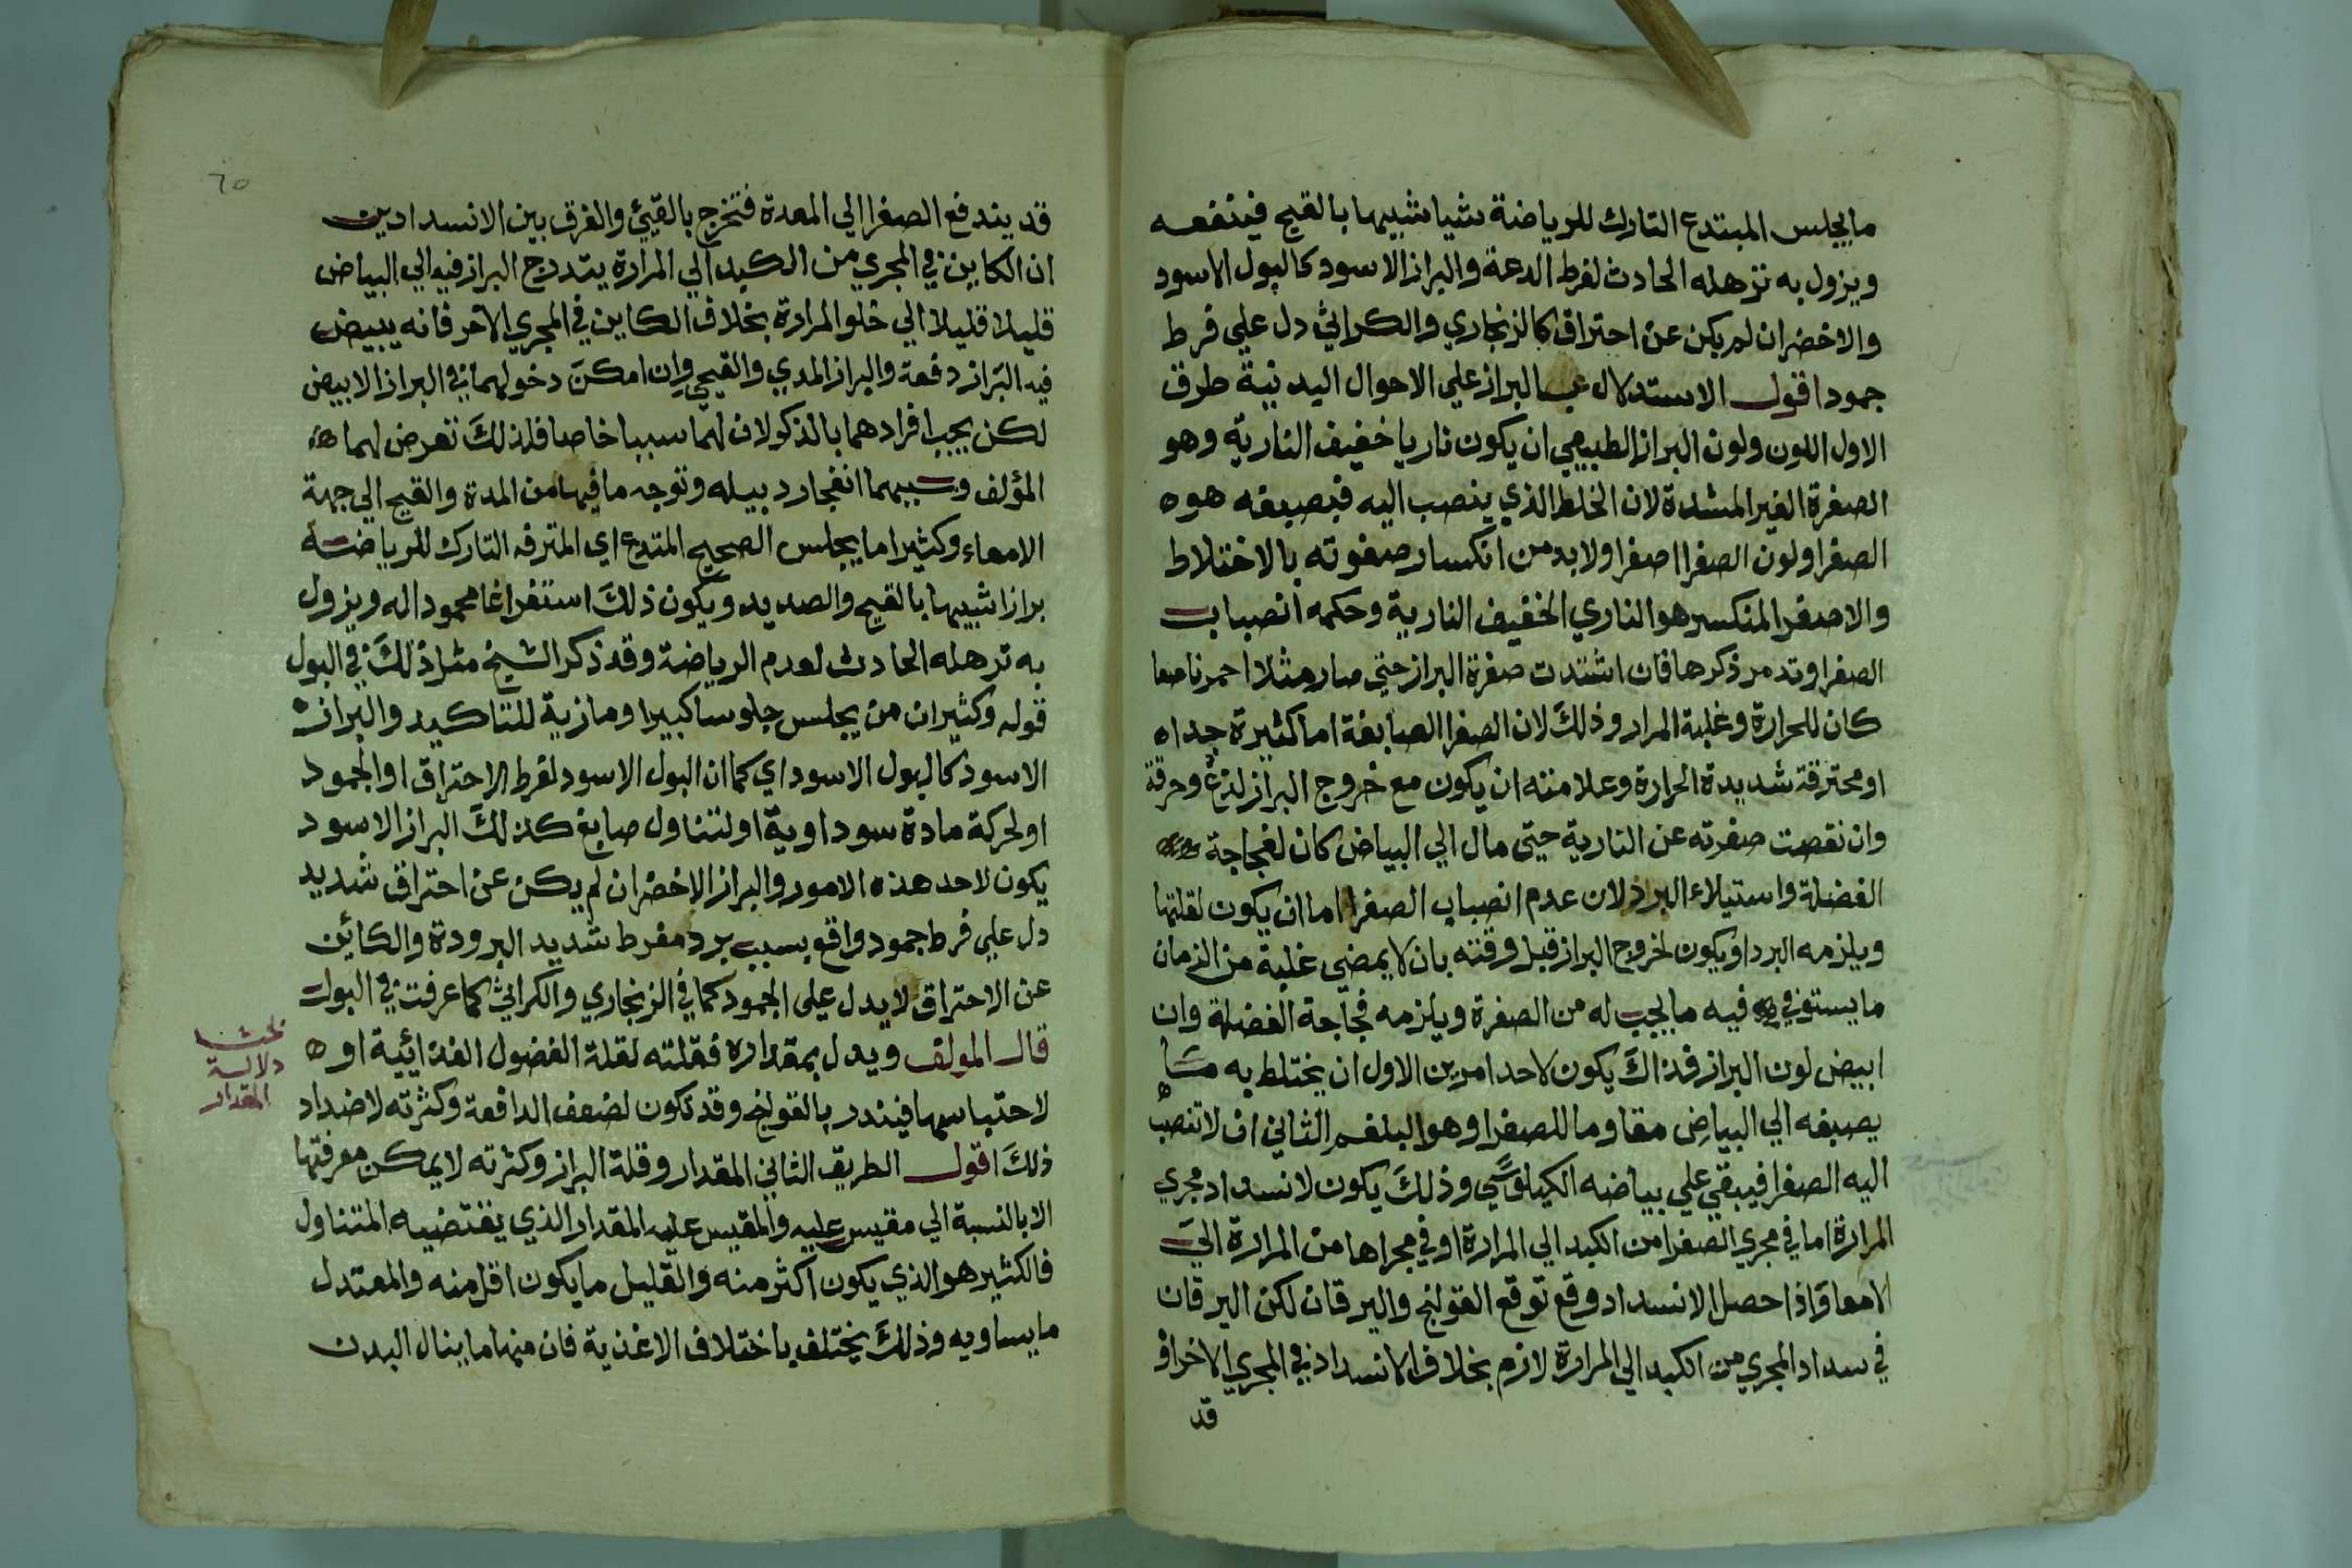 ما يجلس المبتدع التارك للرياضة شيا شبيها بالقيح فينفعه
ويزول به ترهله الحادث لفرط الدعة والبراز الاسود كالبول الاسود
والاخضر ان لم يكن عن احتراق كالزنجاري والكراثي دل علي فرط
جمود اقول الاستدلال بالبراز علي الاحوال البدنية طرق
الاول اللون ولون البراز الطبيعي ان يكون ناريا خفيف النارية وهو
الصفرة الغير المشدة لان الخلط الذي ينصب اليه فيصبغه هو
الصفرا ولون الصفرا اصفر ولا بد من انكسار صفوته بالاختلاط
والاصفر المنكسر هو الناري الخفيف النارية وحكمه انصباب
الصفرا وقد مر ذكرها فان اشتدت صفرة البراز حتي صار مثلا احمر ناصعا
كان للحرارة وغلبة المرار وذلك لان الصفرا الصابغة اما كثيرة جدا
او محترقة شديدة الحرارة وعلامته ان يكون مع خروج البراز لذع وحرقة
وان نقصت صفرته عن النارية حتي مال الي البياض كان لفجاجة
الفضلة واستيلاء البرد لان عدم انصباب الصفرا اما ان يكون لقلتها
ويلزمه البرد او يكون لخروج البراز قبل وقته بان لا يمضي عليه من الزمان
ما يستوفي فيه ما يجب له من الصفرة ويلزمه فجاجة الفضلة وان
ابيض لون البراز فذاك يكون لاحد امرين الاول ان يختلط به مما
يصبغه الي البياض مقاوما للصفرا وهو البلغم الثاني ان لا تنصب
اليه الصفرا فيبقي علي بياضه الكيلوسي وذلك يكون لانسداد مجري
المرارة اما في مجري الصفرا من الكبد الي المرارة او في مجراها من المرارة الي
الامعا واذا حصل الانسداد وقع توقع القولنج واليرقان لكن اليرقان
في سداد المجري من الكبد الي المرارة لازم بخلاف الانسداد في المجري الاخر اذ
قد
٦٥
قد يندفع الصفرا الي المعدة فتخرج بالقيئ والفرق بين الانسدادين
ان الكاين في المجري من الكبد الي المرارة يتدرج البراز فيه الي البياض
قليلا قليلا الي خلو المرارة بخلاف الكاين في المجري الاخر فانه يبيض
فيه البراز دفعة والبراز المدي والقيحي وان امكن دخولهما في البراز الابيض
لكن يجب افرادهما بالذكر لان لهما سببا خاصا فلذلك تعرض لهما
المؤلف وسببهما انفجار دبيله وتوجه ما فيها من المدة والقيح الي جهة
الامعاء وكثيرا ما يجلس الصحيح المتدع اي المترفه التارك للرياضة
برازا شبيها بالقيح والصديد ويكون ذلك استفراغا محمودا له ويزول
به ترهله الحادث لعدم الرياضة وقد ذكر الشيخ مثل ذلك في البول
قوله وكثيرا ن من يجلس جلوسا كبيرا وما زية للتاكيد والبراز
الاسود كالبول الاسود اي كما ان البول الاسود لفرط الاحتراق او الجمود
او لحركة مادة سوداوية او لتناول صابغ كذلك البراز الاسود
يكون لاحد هذه الامور والبراز الاخضر ان لم يكن عن احتراق شديد
دل علي فرط جمود واقع بسبب برد مفرط شديد البرودة والكائن
عن الاحتراق لا يدل علي الجمود كما في الزنجاري والكراثي كما عرفت في البول
قال المولف ويدل بمقداره فقلته لقلة الفضول الغذائية او
لاحتباسها فينذر بالقولنج وقد تكون لضعف الدافعة وكثرته لاضداد
ذلك اقول الطريق الثاني المقدار وقلة البراز وكثرته لا يمكن معرفتها
الا بالنسبة الي مقيس عليه والمقيس عليه المقدار الذي يقتضيه المتناول
فالكثير هو الذي يكون اكثر منه والقليل ما يكون اقل منه والمعتدل
ما يساويه وذلك يختلف باختلاف الاغذية فان منها ما ينال البدن
بحث
دلالة
المقدار